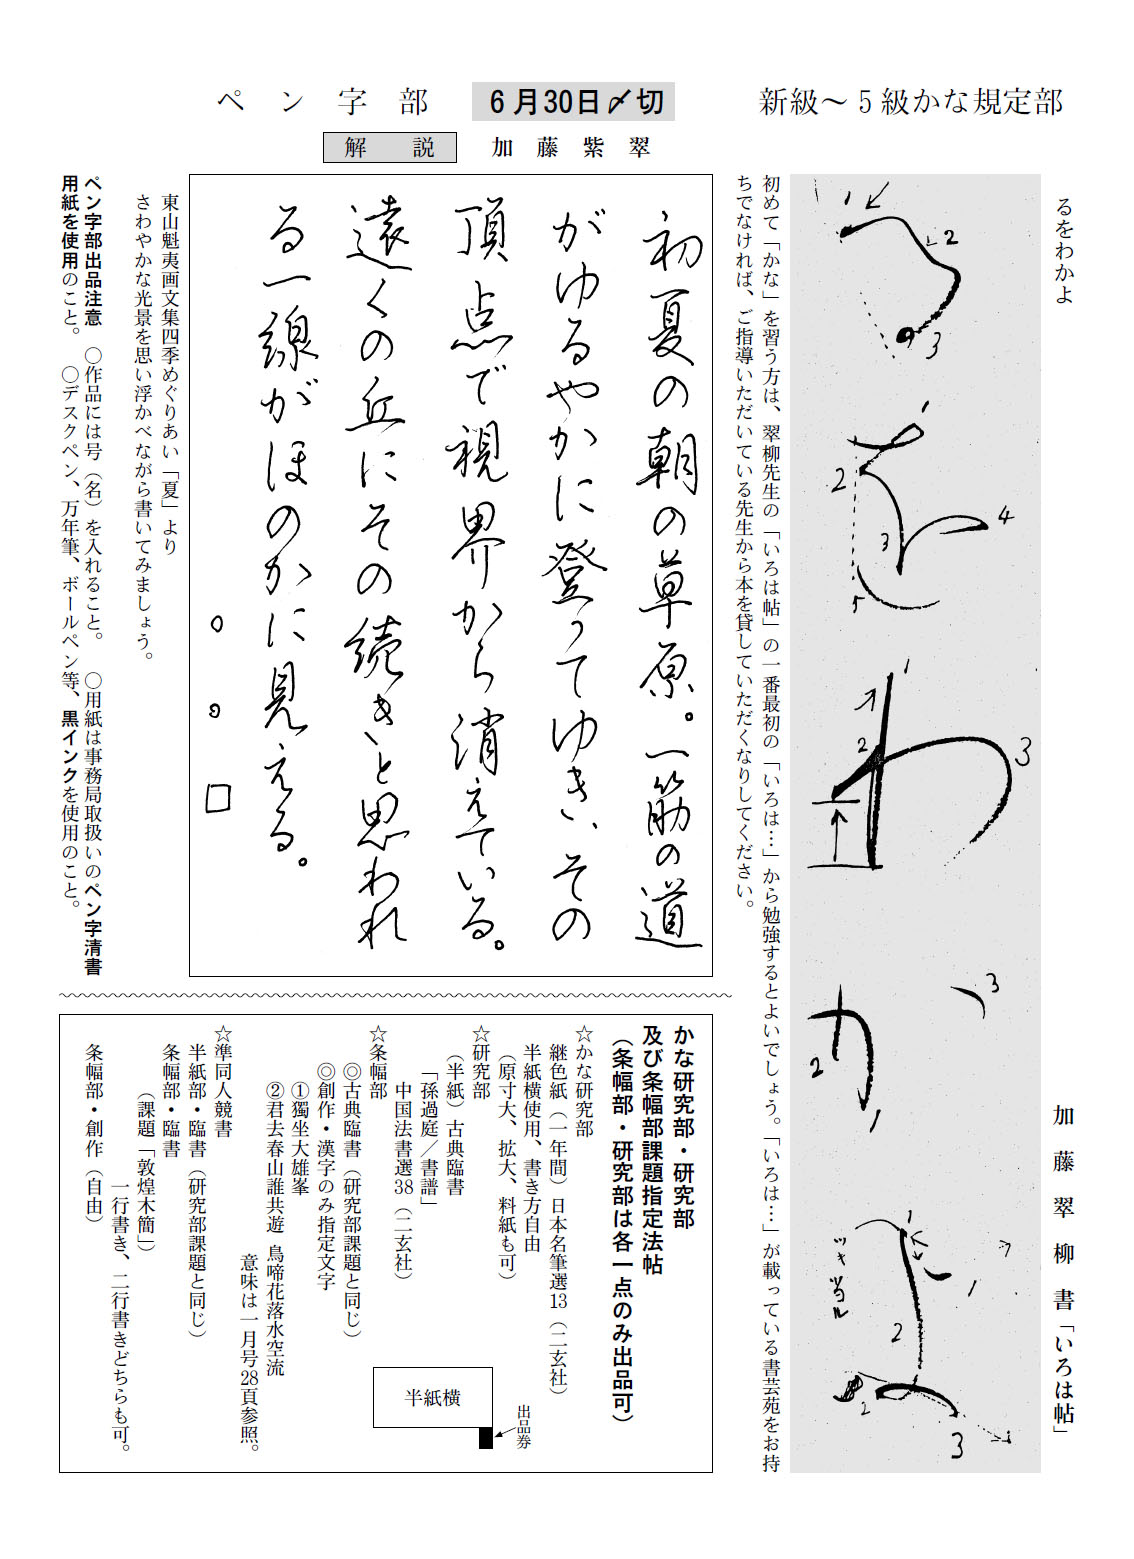 新級～5級かな規定部
るをわかよ
加藤翠柳書「いろは帖」
1
2
3
1
2
3
4
5
1
2
3
3
2
1
1
1
2
ツキ当ル
2
3
初めて「かな」を習う方は、翠柳先生の「いろは帖」の一番最初の「いろは…」から勉強するとよいでしょう。「いろは…」が載っている書芸苑をお持
ちでなければ、ご指導いただいている先生から本を貸していただくなりしてください。
ペン字部
6月30日〆切
解説
加藤紫翠
初夏の朝の草原。一筋の道
がゆるやかに登ってゆき、その
頂点で視界から消えている。
遠くの丘にその続きと思われ
る一線がほのかに見える。
東山魁夷画文集四季めぐりあい「夏」より
さわやかな光景を思い浮かべながら書いてみましょう。
ペン字部出品注意　○作品には号（名）を入れること。　○用紙は事務局取扱いのペン字清書
用紙を使用のこと。　○デスクペン、万年筆、ボールペン等、黒インクを使用のこと。
かな研究部・研究部
及び条幅部課題指定法帖
（条幅部・研究部は各一点のみ出品可）
☆かな研究部
継色紙（一年間）日本名筆選13（二玄社）
半紙横使用、書き方自由
（原寸大、拡大、料紙も可）
半紙横
出品券
☆研究部
（半紙）古典臨書
「孫過庭／書譜」
中国法書選38（二玄社）
☆条幅部
◎古典臨書（研究部課題と同じ）
◎創作・漢字のみ指定文字
①獨坐大雄峯
②君去春山誰共遊　鳥啼花落水空流
意味は一月号28頁参照。
☆準同人競書
半紙部・臨書（研究部課題と同じ）
条幅部・臨書
（課題「敦煌木簡」）
一行書き、二行書きどちらも可。
条幅部・創作（自由）